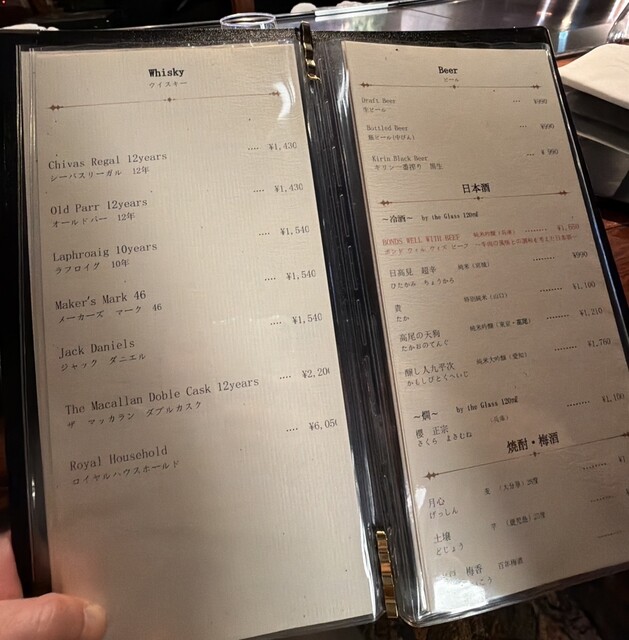 Whisky
ウイスキー
Chivas Regal 12years .... ¥1,430
シーバスリーガル 12年
Old Parr 12years .... ¥1,430
オールドパー 12年
Laphroaig 10years .... ¥1,540
ラフロイグ 10年
Maker's Mark 46 .... ¥1,540
メーカーズ マーク 46
Jack Daniels .... ¥1,540
ジャック ダニエル
The Macallan Doble Cask 12years .... ¥2,20
ザ マッカラン ダブルカスク
Royal Household .... ¥6,05
ロイヤルハウスホールド
Beer
ビール
Draft Beer ... ¥990
生ビール
Bottled Beer ... ¥990
瓶ビール(中びん)
Kirin Black Beer ... ¥ 990
キリン一番搾り 黒生
日本酒
~冷酒~ by the Glass 120ml
BONDS WELL WITH BEEF 純米吟醸 ........ ¥1,650
ボンド ウィル ウィズ ビーフ
日高見 超辛 純米(宮城) ........ ¥990
ひたかみ ちょうから
貴 特別純米(山口) ........ ¥1,100
たか
高尾の天狗 純米吟醸(東京・高尾) ........ ¥1,210
たかおのてんぐ
醸し人九平次 純米大吟醸(愛知) ........ ¥1,760
かもしびとくへいじ
~燗~ by the Glass 120ml
櫻 正宗 (兵庫) ........ ¥1,100
さくら まさむね
焼酎・梅酒
月心 麦 (大分県) ¥1
げっしん
土壌 芋 (鹿児島)
どじょう
梅香 百年梅酒